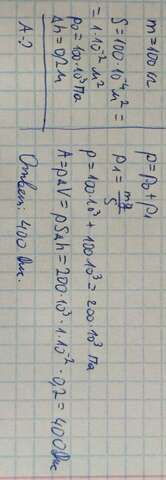 m = 100 кг
S = 100·10⁻⁴ м² =
= 1·10⁻² м²
p₀ = 100·10³ Па
Δh = 0,2 м
A - ?
p = p₀ + p₁
p₁ = mg/S
p = 100·10³ + 100·10³ = 200·10³ Па
A = pΔV = pSΔh = 200·10³·1·10⁻²·0,2 = 400 Дж
Ответ: 400 Дж.